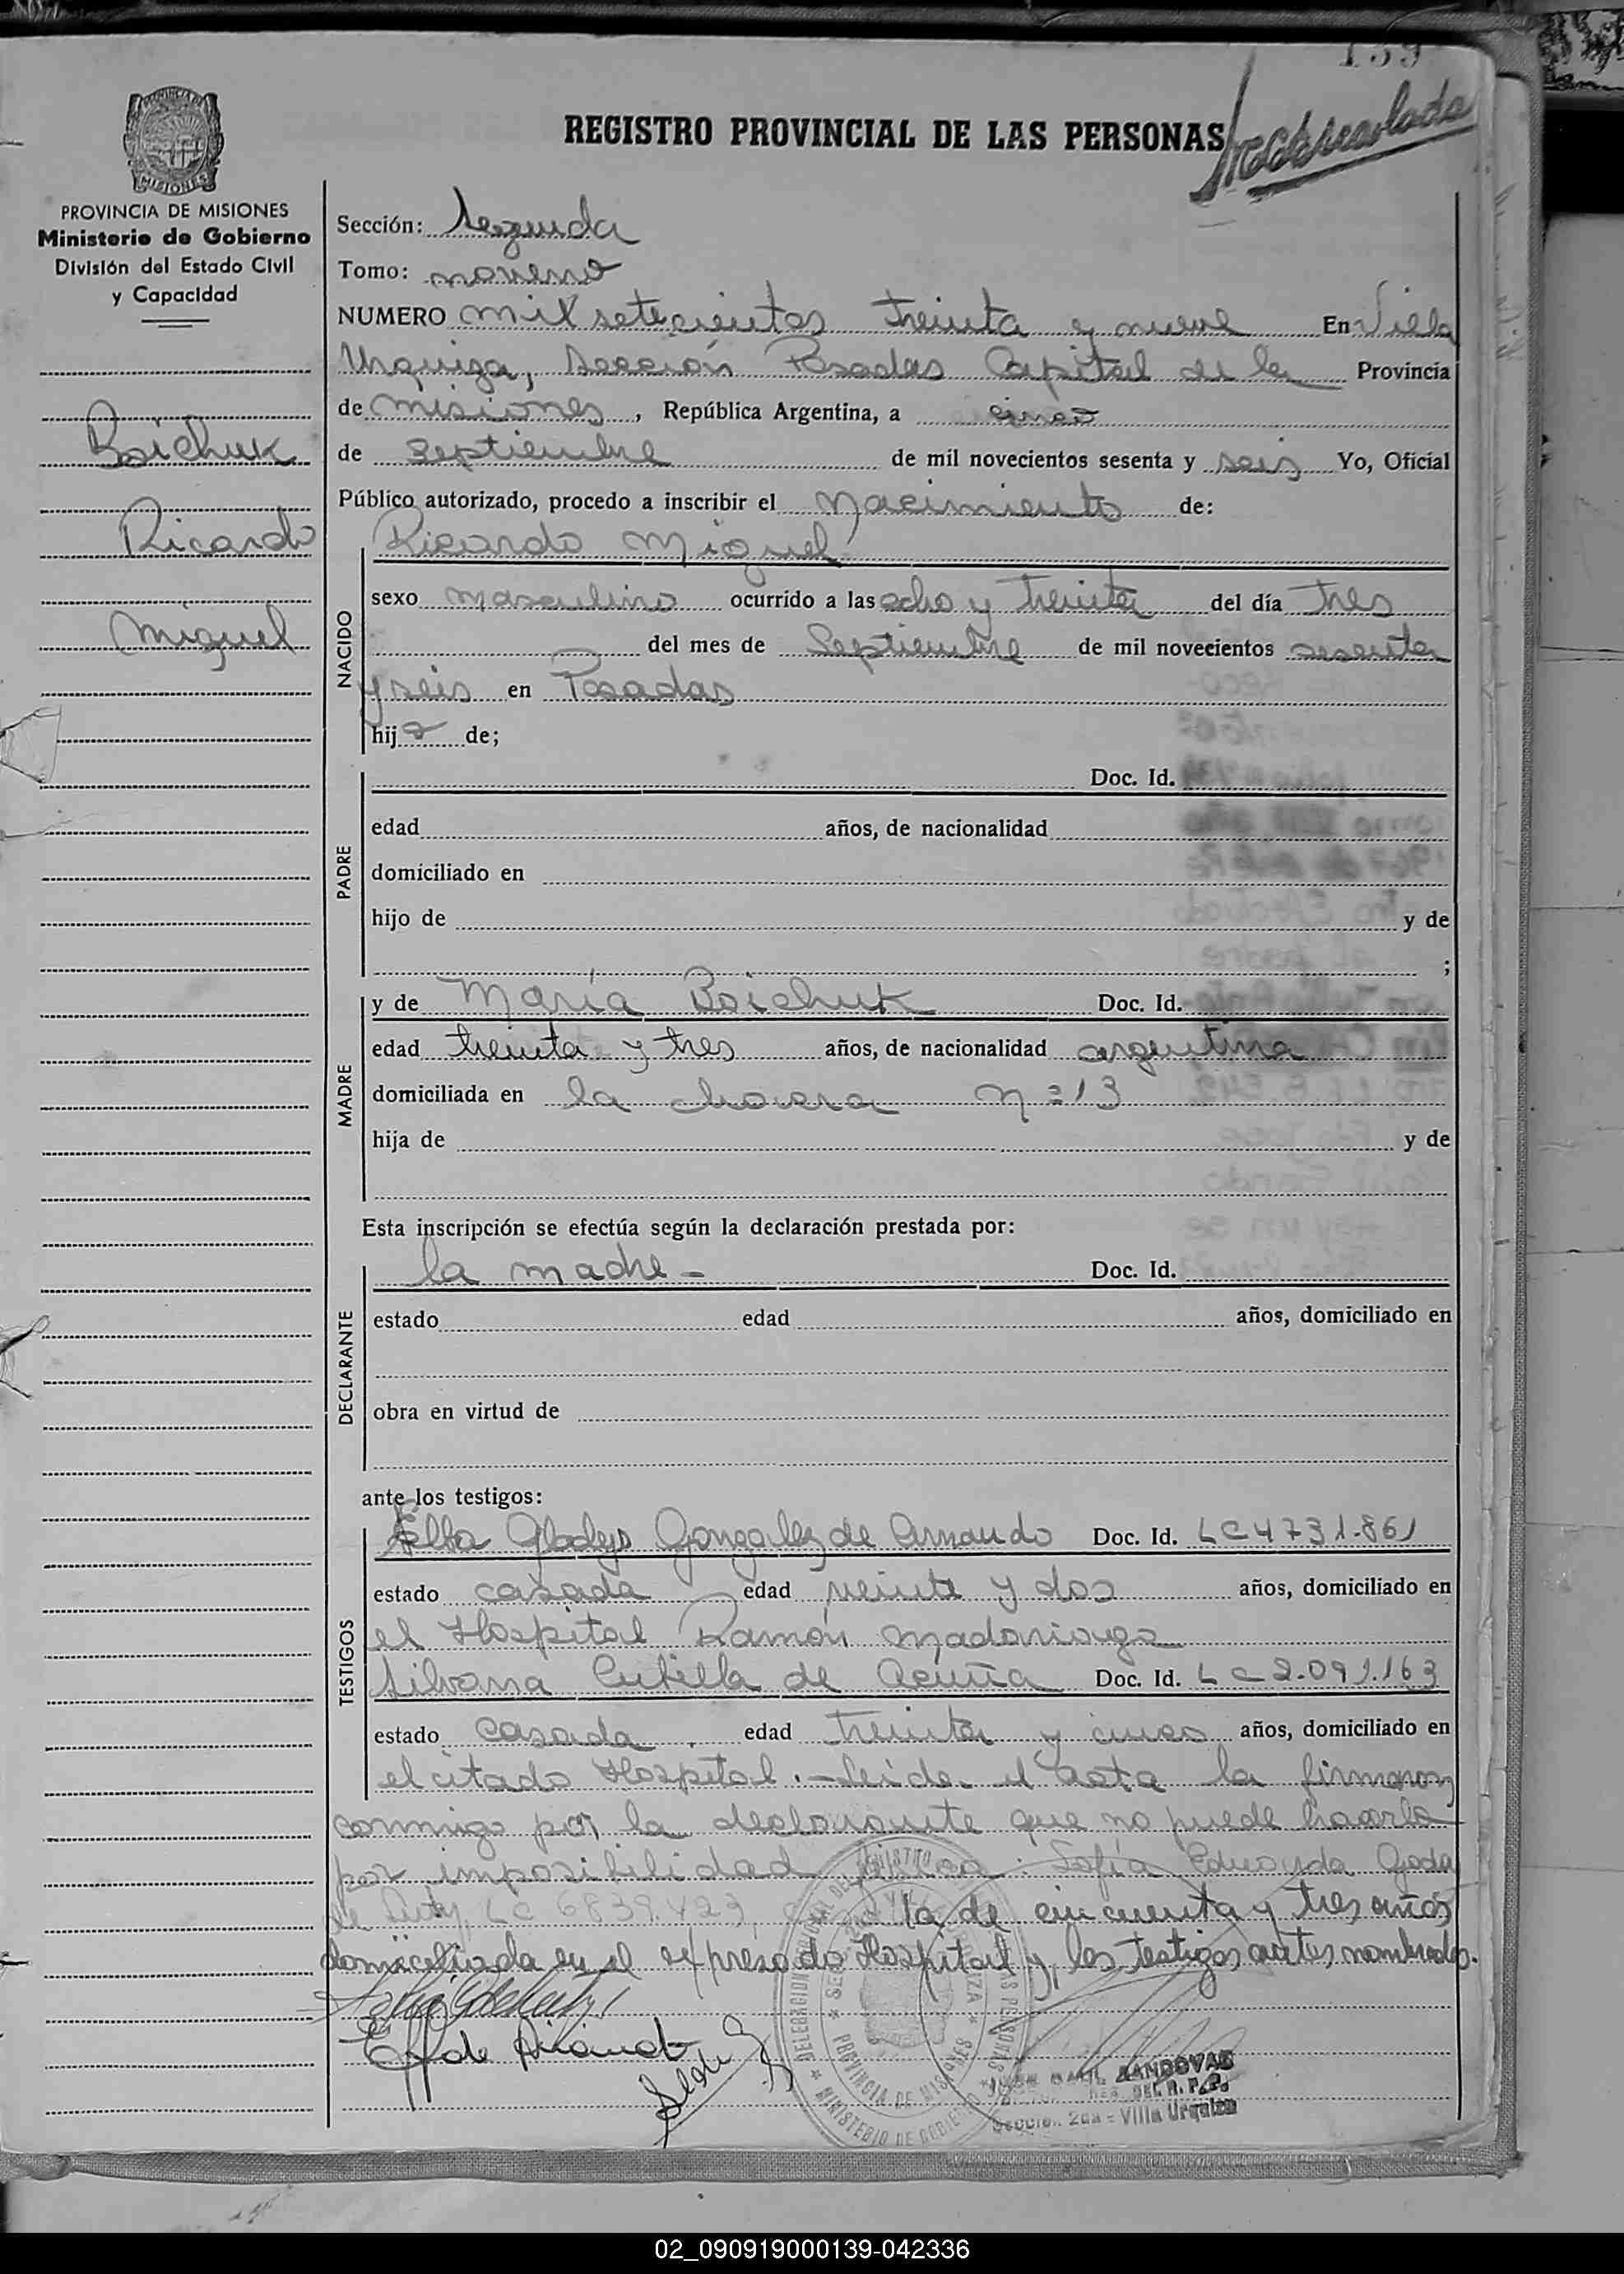 139
REGISTRO PROVINCIAL DE LAS PERSONAS
PROVINCIA DE MISIONES
Ministerio de Gobierno
División del Estado Civil
y Capacidad
Boichuk
Ricardo
Miguel
Sección: Segunda
Tomo: noveno
NUMERO mil setecientos treinta y nueve En Villa
Urquiza, Sección Posadas Capital de la Provincia
de Misiones, República Argentina, a cinco
de Septiembre de mil novecientos sesenta y seis Yo, Oficial
Público autorizado, procedo a inscribir el Nacimiento de:
Ricardo Miguel
NACIDO
sexo masculino ocurrido a las ocho y treinta del día tres
del mes de Septiembre de mil novecientos sesenta
y seis en Posadas
hijo de;
PADRE
Doc. Id.
edad años, de nacionalidad
domiciliado en
hijo de y de
;
MADRE
y de María Boichuk Doc. Id.
edad treinta y tres años, de nacionalidad argentina
domiciliada en la chacra Nº 13
hija de y de
Esta inscripción se efectúa según la declaración prestada por:
DECLARANTE
la madre - Doc. Id.
estado edad años, domiciliado en
obra en virtud de
ante los testigos:
TESTIGOS
Elba Gladys Gonzalez de Armando Doc. Id. LC 4731.861
estado casada edad veinte y dos años, domiciliado en
el Hospital Ramón Madariaga
Silvana Cubilla de Acuña Doc. Id. LC 2.091.163
estado casada. edad treinta y cinco años, domiciliado en
el citado Hospital.- Leída el acta la firmaron
conmigo por la declarante que no puede hacerlo
por imposibilidad física: Sofía Eduarda Goda
de LC 6839.423, la de cincuenta y tres años
domiciliada en el expresado Hospital y los testigos antes nombrados.
SANDOVAL
DEL R. P. P.
Sección 2da - Villa Urquiza
PROVINCIA DE MISIONES
MINISTERIO DE GOBIERNO
02_090919000139-042336